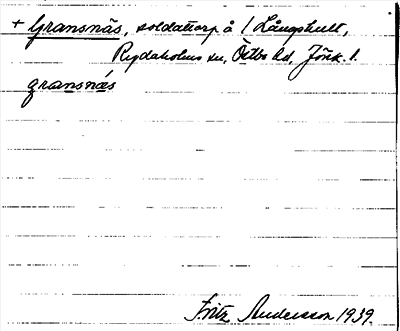 + Gransnäs, soldattorp å 1 Långhult,
Rydaholms sn, Östbo hd, Jönk. l.
gransnäs
Fritz Andersson 1939.